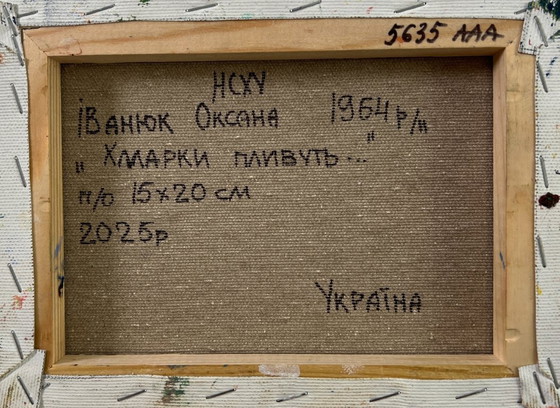 5635 ААА
НСХУ
Іванюк Оксана 1964 р/н
„ Хмарки пливуть..."
п/о 15х20 см
2025р
Україна